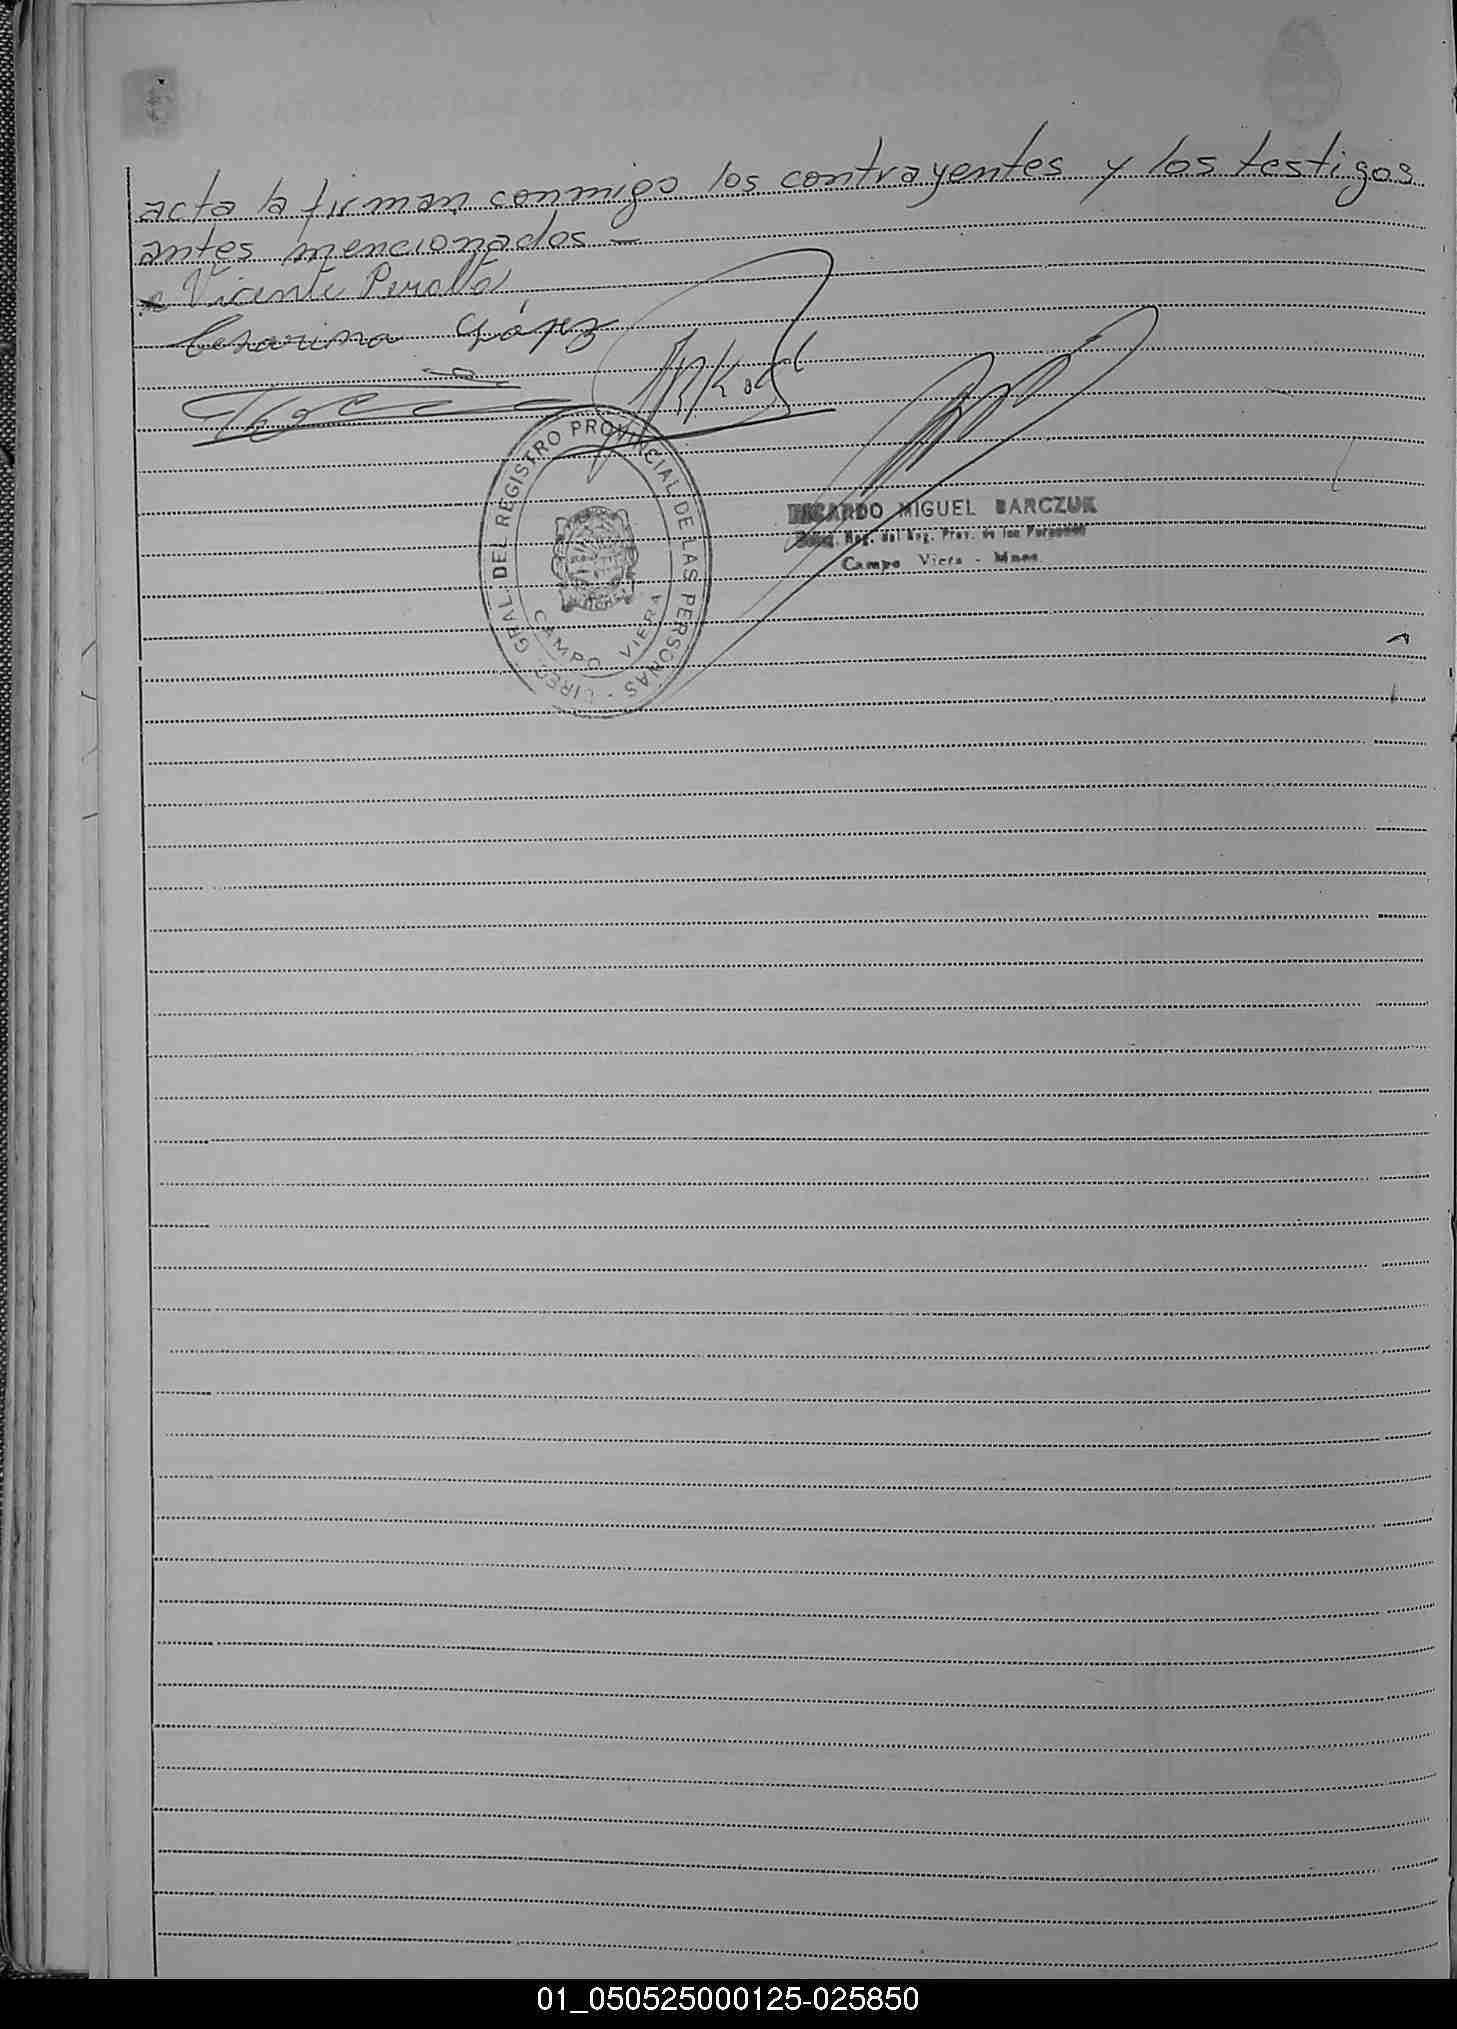 acta la firman conmigo los contrayentes y los testigos
antes mencionados -
Vicente Peralta
Cesarina López
DIREC. GRAL. DEL REGISTRO PROVINCIAL DE LAS PERSONAS -
CAMPO VIERA
RICARDO MIGUEL BARCZUK
Reg. del Reg. Prov. de las Personas
Campo Viera - Mnes.
01_050525000125-025850